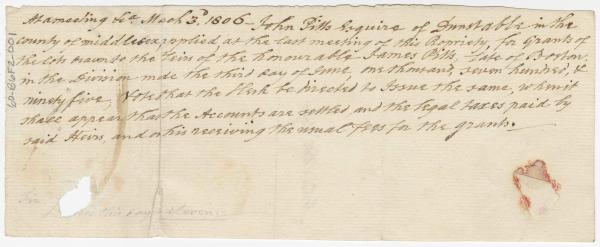 At a meeting &c. March 3d. 1806 - John Pitts Esquire of Dunstable in the
county of middlesex, applied at the last meeting of this Propriety, for Grants of
the lots drawn to the heirs of the honourable James Pitts, late of Boston,
in the Division made the third day of June, one thousand, seven hundred, &
ninety five, Vote that the Clerk be directed to Issue the same, when it
shall appear that the Accounts are settled and the legal taxes paid by
said Heirs, and on his receiving the usual fees for the grants.
eleven